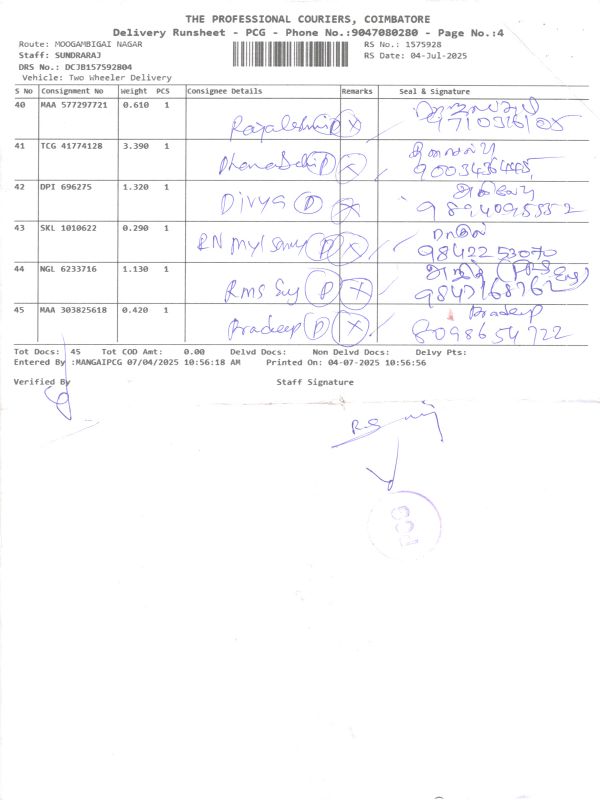 THE PROFESSIONAL COURIERS, COIMBATORE
Delivery Runsheet - PCG - Phone No.:9047080280 - Page No.:4
Route: MOOGAMBIGAI NAGAR RS No.: 1575928
Staff: SUNDRARAJ RS Date: 04-Jul-2025
DRS No.: DCJB157592B04
Vehicle: Two Wheeler Delivery
S No Consignment No Weight PCS Consignee Details Remarks Seal & Signature
40 MAA 577297721 0.610 1 Rajalakshmi P X 9710316105
41 TCG 41774128 3.390 1 P X
42 DPI 696275 1.320 1 Divya P X 9894095352
43 SKL 1010622 0.290 1 RN P X 9842253070
44 NGL 6233716 1.130 1 RMS P X 9847168762
45 MAA 303825618 0.420 1 Pradeep P X Pradeep 8098654722
Tot Docs: 45 Tot COD Amt: 0.00 Delvd Docs: Non Delvd Docs: Delvy Pts:
Entered By :MANGAIPCG 07/04/2025 10:56:18 AM Printed On: 04-07-2025 10:56:56
Verified By Staff Signature